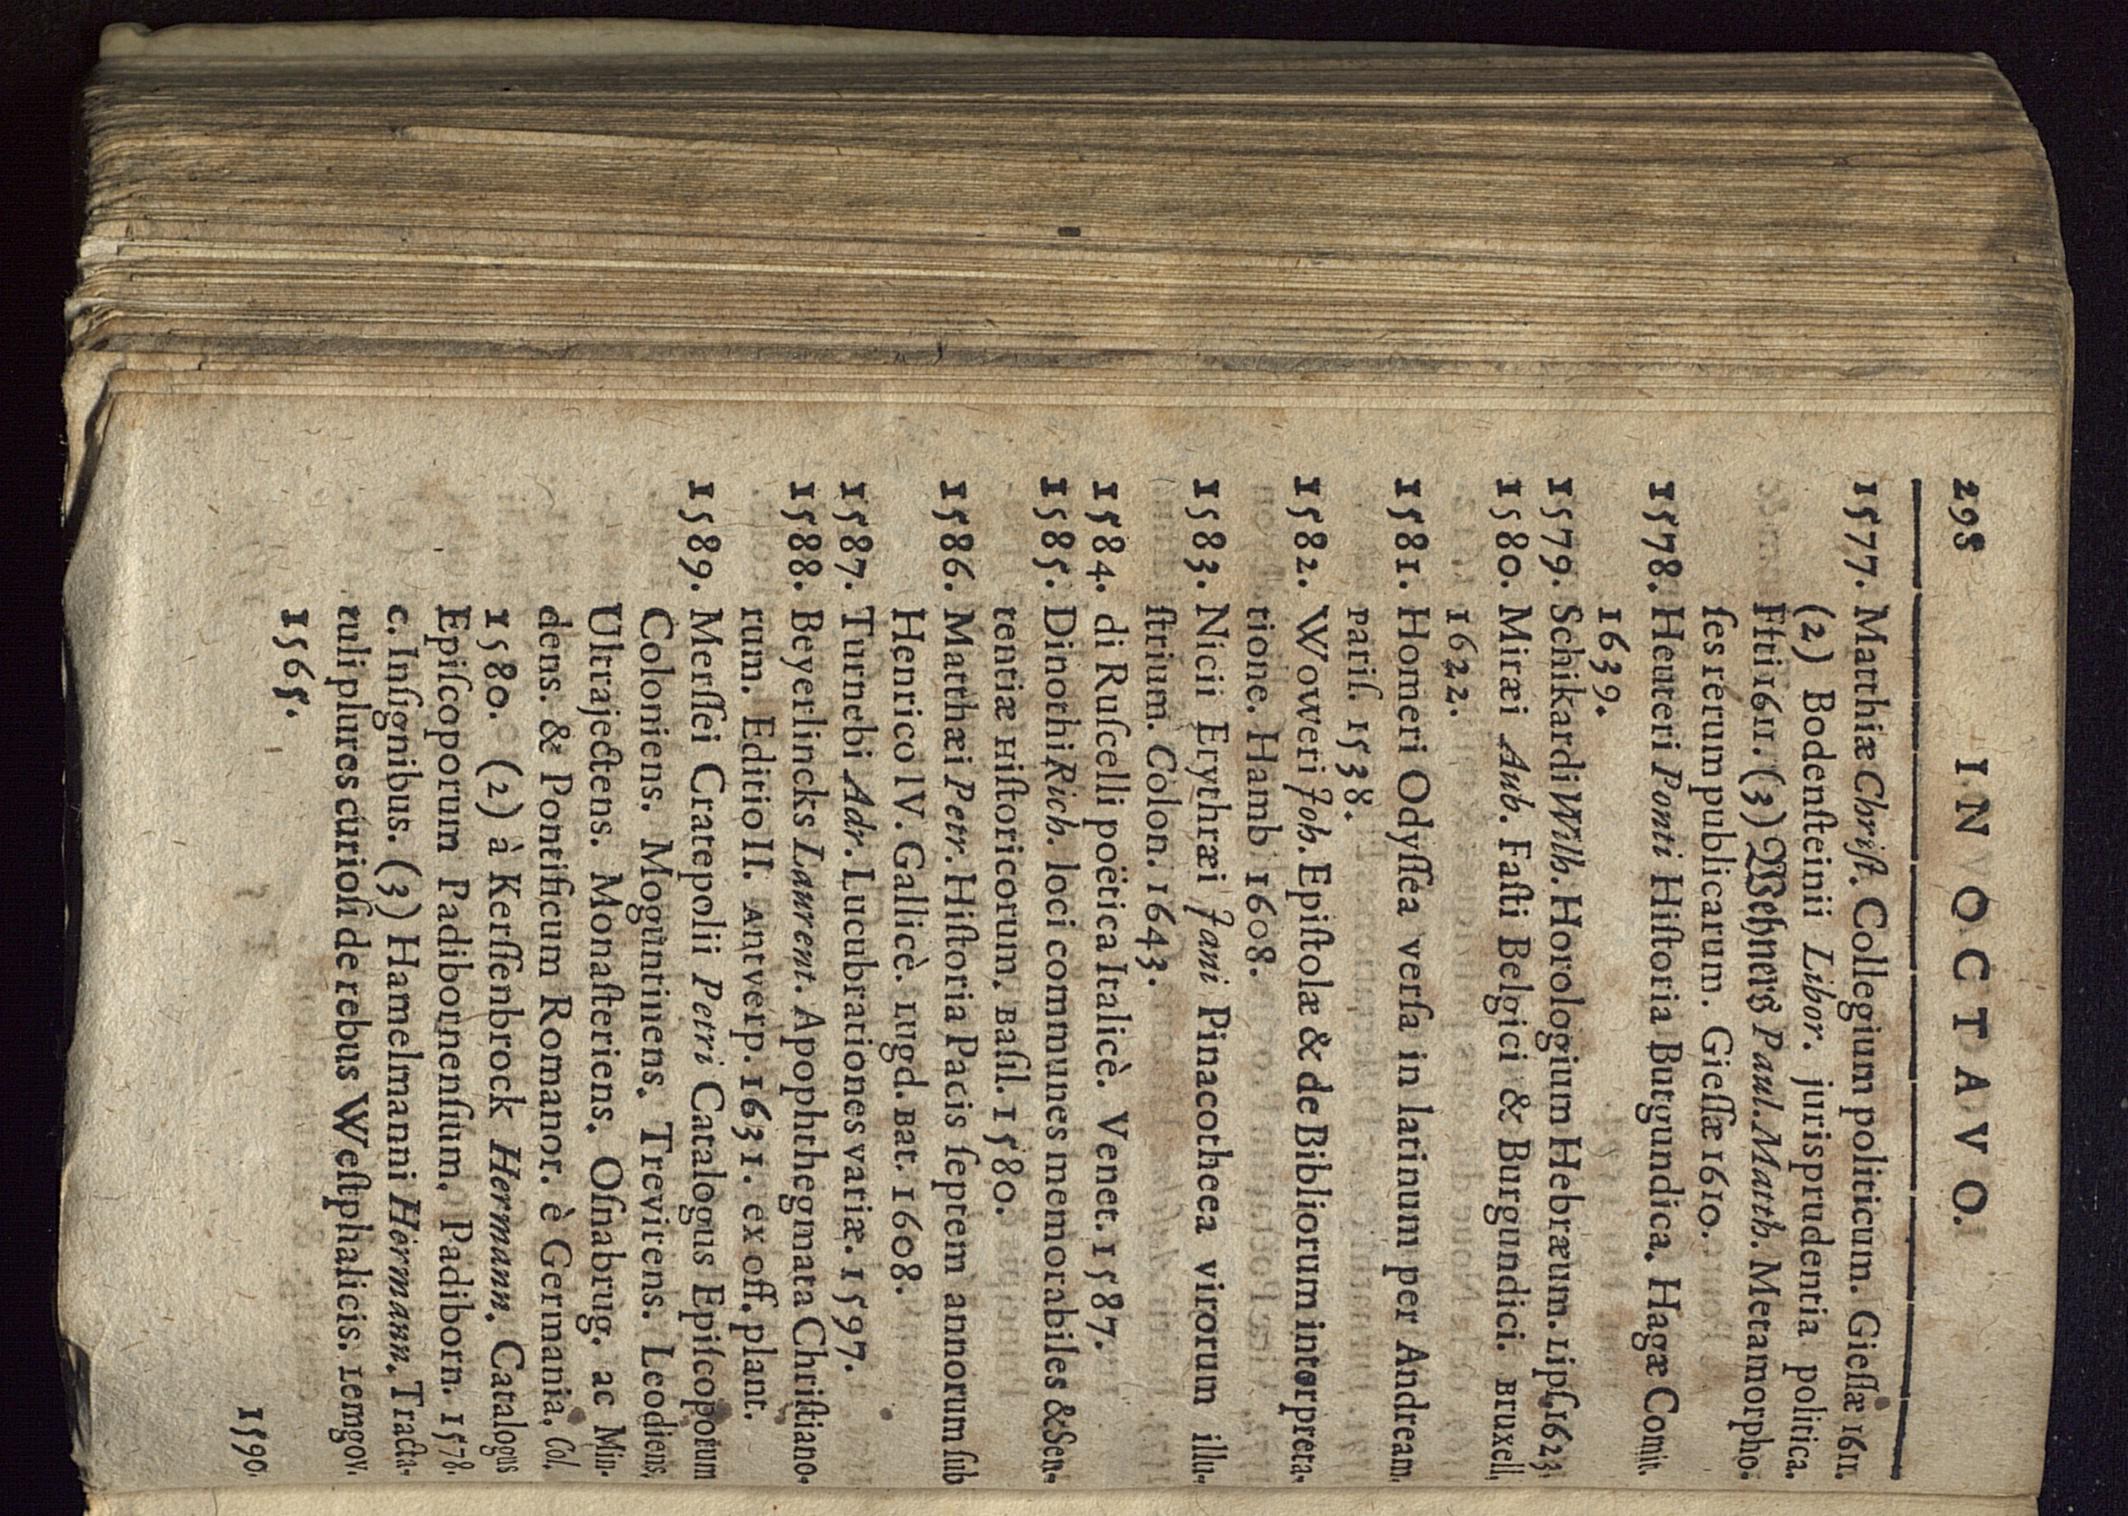 298 IN OCTAVO.
1577. Matthiæ Chriſt. Collegium politicum. Gieſſæ 1611.
(2) Bodenſteinii Libor. jurisprudentia politica.
Ffti 1611. (3) Wehners Paul. Matth. Metamorpho-
ſes rerum publicarum. Gieſſæ 1610.
1578. Heuteri Ponti Hiſtoria Burgundica. Hagæ Comit.
1639.
1579. Schikardi Wilh. Horologium Hebræum. Lipſ. 1623.
1580. Miræi Aub. Faſti Belgici & Burgundici. Bruxell.
1622.
1581. Homeri Odyſſea verſa in latinum per Andream.
Pariſ. 1538.
1582. Woweri Joh. Epiſtolæ & de Bibliorum interpreta-
tione. Hamb 1608.
1583. Nicii Erythræi Jani Pinacotheca virorum illu-
ſtrium. Colon. 1643.
1584. di Ruſcelli poëtica Italicè. Venet. 1587.
1585. Dinothi Rich. loci communes memorabiles & Sen-
tentiæ Hiſtoricorum. Baſil. 1580.
1586. Matthæi Petr. Hiſtoria Pacis ſeptem annorum ſub
Henrico IV. Gallicè. Lugd. Bat. 1608.
1587. Turnebi Adr. Lucubrationes variæ. 1597.
1588. Beyerlincks Laurent. Apophthegmata Chriſtiano-
rum. Editio II. Antverp. 1631. ex off. plant.
1589. Merſſei Cratepolii Petri Catalogus Epiſcoporum
Coloniens. Moguntinens. Trevirens. Leodiens.
Ultrajectens. Monaſteriens. Oſnabrug. ac Min-
dens. & Pontificum Romanor. è Germania. Col.
1580. (2) à Kerſſenbrock Hermann. Catalogus
Epiſcoporum Padibornenſium. Padiborn. 1578.
c. Inſignibus. (3) Hamelmanni Hermann. Tracta-
tuli plures curioſi de rebus Weſtphalicis. Lemgov.
1565.
1590.